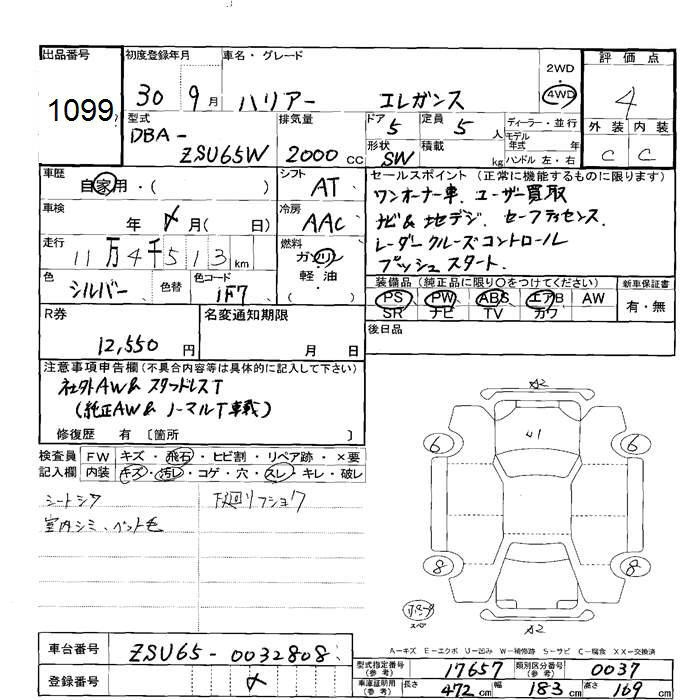 出品番号
1099
初度登録年月
30 9 月
車名・グレード
ハリアー エレガンス
2WD
4WD
評価点
4
外装 内装
C C
型式
DBA-
ZSU65W
排気量
2000 cc
ドア 5
定員 5 人
形状 SW
積載 kg
ディーラー・並行
モデル年式 年
ハンドル 左・右
車歴
自家用・( )
シフト
AT
車検
年 月( 日)
冷房
AAC
走行
11万4千513 km
燃料
ガソリン
軽油
( )
色
シルバー
色替
色コード
1F7
セールスポイント (正常に機能するものに限ります)
ワンオーナー車、ユーザー買取
ナビ&地デジ、セーフティセンス、
レーダークルーズコントロール
プッシュスタート、
装備品(純正品に限り○をつけてください)
PS PW ABS エアB AW
SR ナビ TV カワ
新車保証書
有・無
後日品
R券
12,550 円
名変通知期限
月 日
注意事項申告欄(不具合内容等は具体的に記入して下さい)
社外AW& スタッドレスT
(純正AW& ノーマルT車載)
修復歴 有 〔箇所 〕
検査員 FW キズ・飛石・ヒビ割・リペア跡・×要
記入欄 内装 キズ・汚レ・コゲ・穴・スレ・キレ・破レ
シートシワ
室内シミ、ペット毛
下廻リフショク
A2
U1
6 6
8 8
スペア
A2
A-キズ E-エクボ U-凹み W-補修跡 S-サビ C-腐食 XX-交換済
車台番号
ZSU65-0032808
登録番号
型式指定番号(参考) 17657
類別区分番号(参考) 0037
車庫証明用(参考) 長さ 472 cm 幅 183 cm 高さ 169 cm